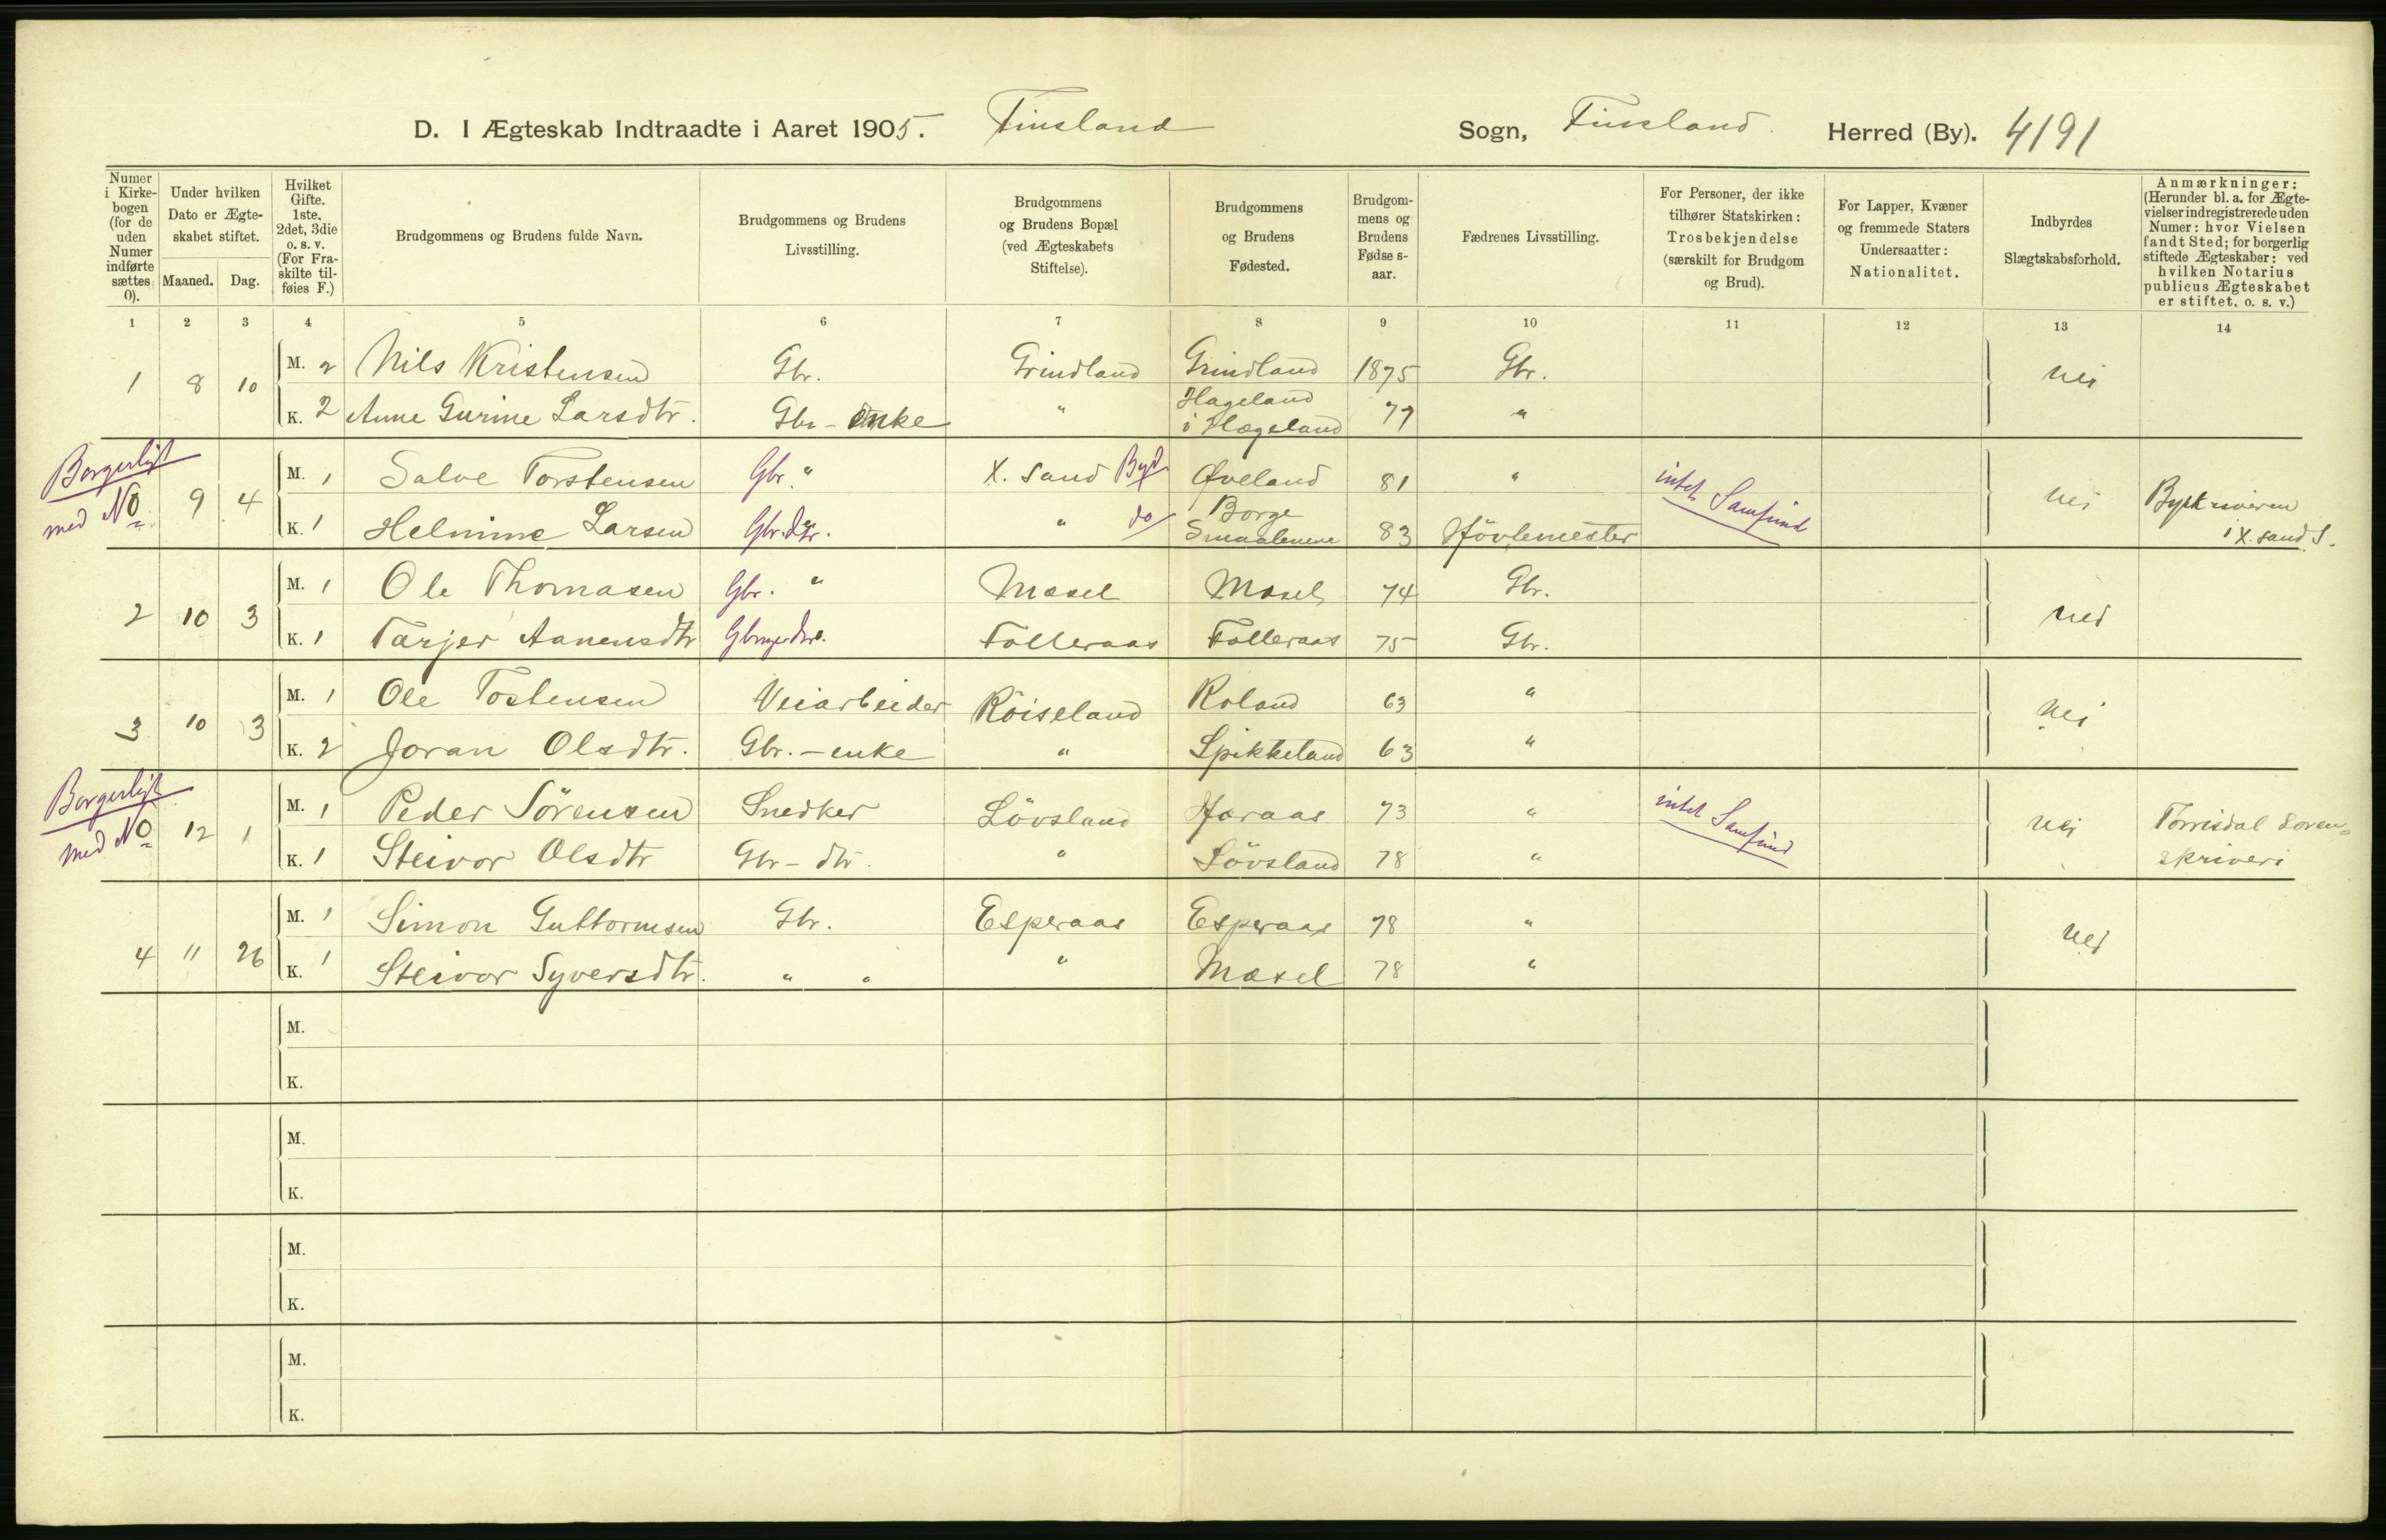 D. I Ægteskab Indtraadte i Aaret 1905. Finsland Sogn, Finsland. Herred (By). 4191
Numer i Kirke-bogen (for de uden Numer indførte sættes 0).
Under hvilken Dato er Ægte-skabet stiftet.
Maaned. Dag.
Hvilket Gifte. 1ste, 2det, 3die o. s. v. (For Fra-skilte til-føies F.)
Brudgommens og Brudens fulde Navn.
Brudgommens og Brudens Livsstilling.
Brudgommens og Brudens Bopæl (ved Ægteskabets Stiftelse).
Brudgommens og Brudens Fødested.
Brudgom-mens og Brudens Fødse s-aar.
Fædrenes Livsstilling.
For Personer, der ikke tilhører Statskirken: Trosbekjendelse (særskilt for Brudgom og Brud).
For Lapper, Kvæner og fremmede Staters Undersaatter: Nationalitet.
Indbyrdes Slægtskabsforhold.
Anmærkninger: (Herunder bl. a. for Ægte-vielser indregistrerede uden Numer: hvor Vielsen fandt Sted; for borgerlig stiftede Ægteskaber: ved hvilken Notarius publicus Ægteskabet er stiftet, o. s. v.)
1 2 3 4 5 6 7 8 9 10 11 12 13 14
1 8 10 M. 2 Nils Kristensen Gbr. Grindland Grindland 1875 Gbr. nei
K. 2 Anne Gurine Larsdtr. Gbr-enke " Hageland i Hægeland 77 "
Borgerligt med No 9 4 M. 1 Salve Torstensen Gbr. " X. sand By Øveland 81 " intet Samfund nei Byskriveren i X. sand S.
K. 1 Helmine Larsen Gbr.dtr. " do Borge Smaalenene 83 Høvlemester
2 10 3 M. 1 Ole Thomasen Gbr. " Mosel Mosel 74 Gbr. nei
K. 1 Tarjer Aanensdtr Folleraas Folleraas 75 Gbr.
3 10 3 M. 1 Ole Tostensen Veiarbeider Röiseland Roland 63 " nei
K. 2 Joran Olsdtr. Gbr.-enke " Spikkeland 63 "
Borgerligt med No 12 1 M. 1 Peder Sörensen Snedker Lövsland Haraas 73 " intet Samfund nei Torrisdal Soren-
K. 1 Steivor Olsdtr Gbr-dtr. " Lövsland 78 " skriveri
4 11 26 M. 1 Simon Guttormsen Gbr. Esperaas Esperaas 78 " nei
K. 1 Steivor Syversdtr. " " " Mosel 78 "
M.
K.
M.
K.
M.
K.
M.
K.